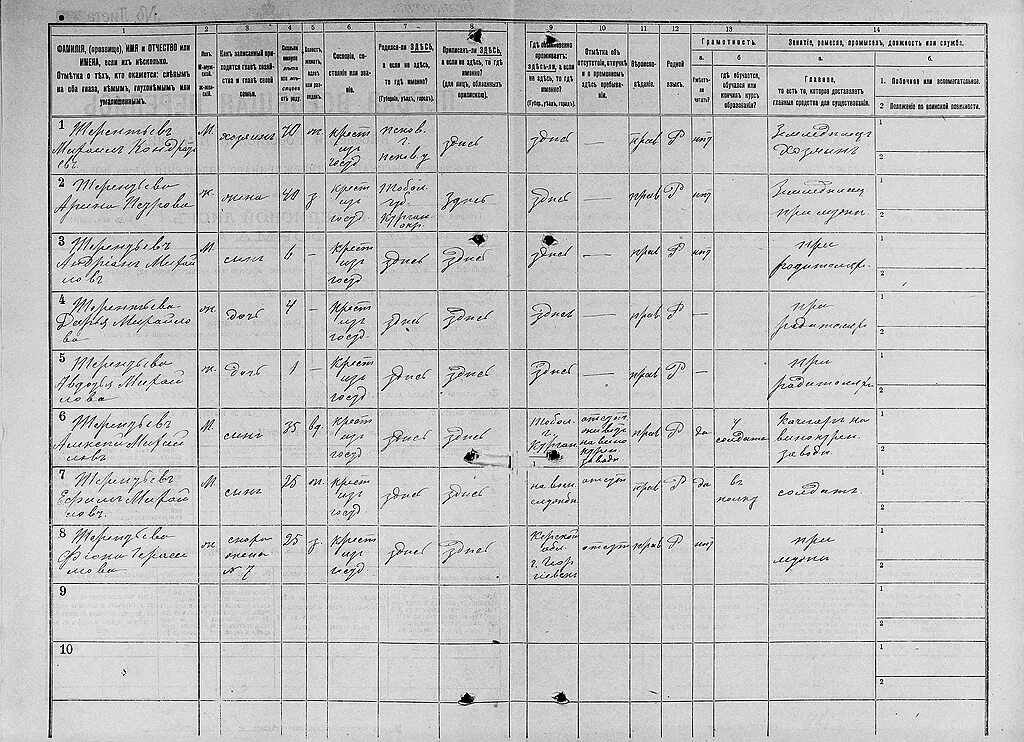 1 2 3 4 5 6 7 8 9 10 11 12 13 14
ФАМИЛІЯ, (прозвище), ИМЯ и ОТЧЕСТВО или
ИМЕНА, если ихъ нѣсколько.
Отмѣтка о тѣхъ, кто окажется: слѣпымъ
на оба глаза, нѣмымъ, глухонѣмымъ или
умалишеннымъ.
Полъ.
М-мужской.
ж-женскій.
Какъ записанный при-
ходится главѣ хозяй-
ства и главѣ своей
семьи.
Сколько
минуло
лѣтъ
или мѣс.
отъ роду.
Холостъ,
женатъ,
вдовъ
или раз-
веденъ.
Сословіе, со-
стояніе или зва-
ніе.
Родился-ли ЗДѢСЬ,
а если не здѣсь,
то гдѣ именно?
(Губернія, уѣздъ, городъ).
Приписанъ-ли ЗДѢСЬ,
а если не здѣсь, то гдѣ
именно?
(для лицъ, обязанныхъ
припискою).
Гдѣ обыкновенно
проживаетъ:
здѣсь-ли, а если
не здѣсь, то гдѣ
именно?
(Губерн., уѣздъ, городъ).
Отмѣтка объ
отсутствіи, отлучкѣ
и о временномъ
здѣсь пребыва-
ніи.
Вѣроиспо-
вѣданіе.
Родной
языкъ.
Грамотность.
а.
Умѣетъ-
ли
читать?
б.
гдѣ обучается,
обучался или
кончилъ курсъ
образованія?
Занятіе, ремесло, промыселъ, должность или служба.
а.
Главное,
то есть то, которое доставляетъ
главныя средства для существованія.
б.
1. Побочное или вспомогательное.
2 Положеніе по воинской повинности.
1 Терентьевъ
Михаилъ Кондрать
евъ
М. хозяинъ 70 ж. крест
изъ
госуд. псков.
г.
псков. у здѣсь здѣсь — прав Р нѣт Земледѣлец
хозяинъ
1
2
2 Терентьева
Арина Петрова
ж. жена 40 з. крест
изъ
госуд Тобол.
губ.
Курган
окр. здѣсь здѣсь — прав Р нѣт Земледѣлец
при мужѣ
1
2
3 Терентьевъ
Андріанъ Михай
ловъ
М сынъ 6 — крест
изъ
госуд здѣсь здѣсь здѣсь — прав Р нѣт при
родителях
1
2
4 Терентьева
Дарья Михайло
ва
ж. дочь 4 — Крест
изъ
госуд. здѣсь здѣсь здѣсь — прав Р — при
родителях
1
2
5 Терентьева
Авдотья Михай
лова
ж. дочь 1 — Крест
изъ
госуд здѣсь здѣсь здѣсь — прав Р — при
родителях
1
2
6 Терентьевъ
Алексѣй Михай
ловъ
М. сынъ 35 вд. крест
изъ
госуд здѣсь здѣсь Тобол.
г.
Курган отсут
на вино
курен
заводѣ прав Р да у
солдата на
винокурен.
заводѣ
1
2
7 Терентьевъ
Ефимъ Михай
ловъ
М сынъ 25 ж. крест
изъ
госуд. здѣсь здѣсь на воен
службѣ отсут прав Р да въ
полку солдатъ
1
2
8 Терентьева
Герасі
мова
ж жена
№ 7 25 з. Крест
изъ
госуд. здѣсь здѣсь обл.
г. Геор
гіевскъ отсут прав Р нѣт при
мужѣ
1
2
9
1
2
10
1
2